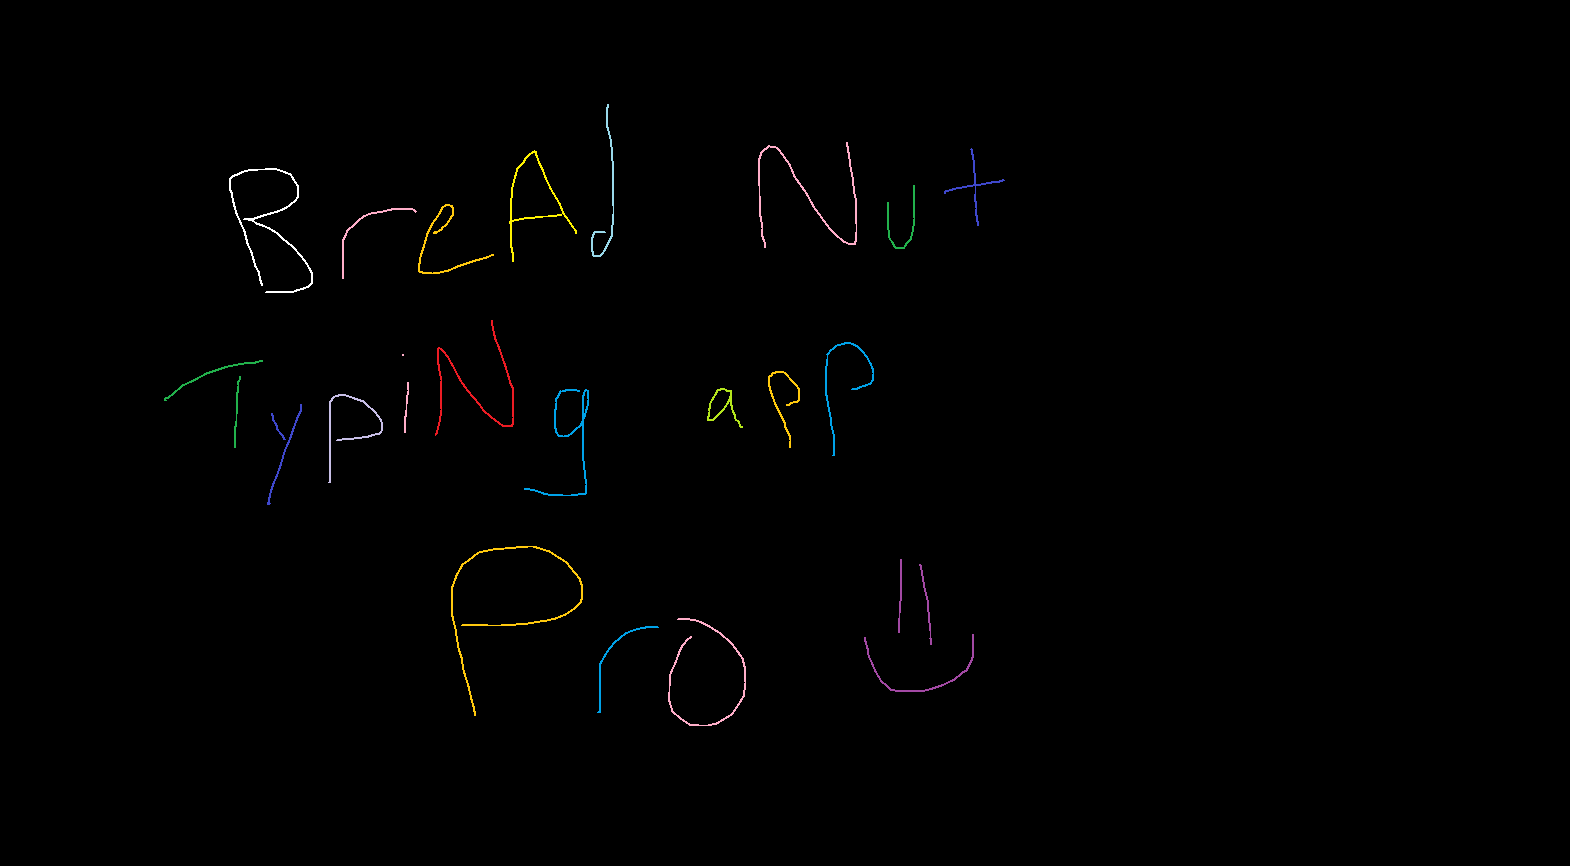 BreAd Nut
TypiNg apP
Pro